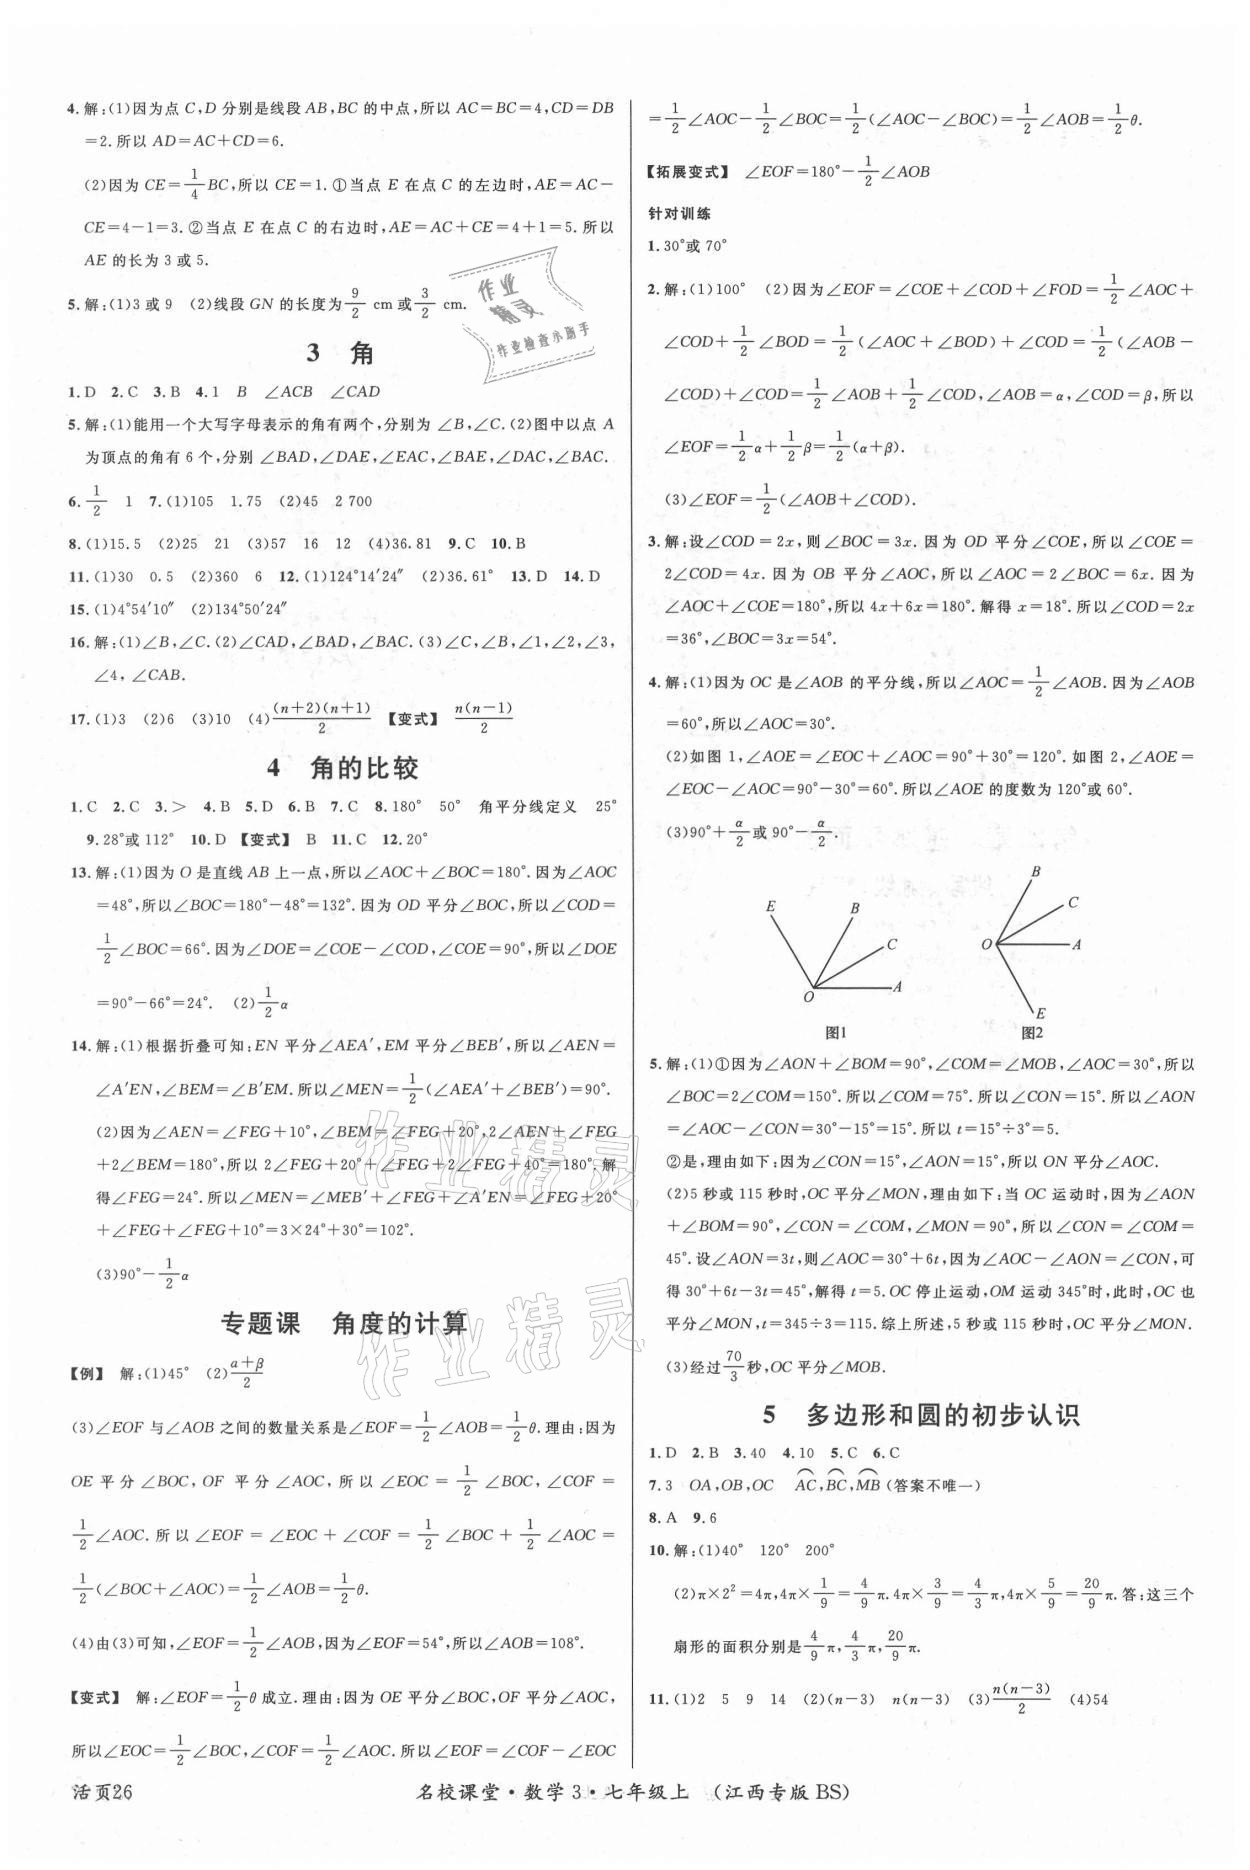 4.解:(1)因为点 C,D 分别是线段 AB,BC 的中点,所以 AC=BC=4,CD=DB
=2.所以 AD=AC+CD=6.
(2)因为 CE=1/4 BC,所以 CE=1.①当点 E 在点 C 的左边时,AE=AC-
CE=4-1=3.②当点 E 在点 C 的右边时,AE=AC+CE=4+1=5.所以
AE 的长为 3 或 5.
5.解:(1)3 或 9 (2)线段 GN 的长度为 9/2 cm 或 3/2 cm.
3 角
1.D 2.C 3.B 4.1 B ∠ACB ∠CAD
5.解:(1)能用一个大写字母表示的角有两个,分别为 ∠B,∠C.(2)图中以点 A
为顶点的角有 6 个,分别 ∠BAD,∠DAE,∠EAC,∠BAE,∠DAC,∠BAC.
6. 1/2 1 7.(1)105 1.75 (2)45 2 700
8.(1)15.5 (2)25 21 (3)57 16 12 (4)36.81 9.C 10.B
11.(1)30 0.5 (2)360 6 12.(1)124°14′24″ (2)36.61° 13.D 14.D
15.(1)4°54′10″ (2)134°50′24″
16.解:(1)∠B,∠C.(2)∠CAD,∠BAD,∠BAC.(3)∠C,∠B,∠1,∠2,∠3,
∠4,∠CAB.
17.(1)3 (2)6 (3)10 (4)(n+2)(n+1)/2 【变式】 n(n-1)/2
4 角的比较
1.C 2.C 3.> 4.B 5.D 6.B 7.C 8.180° 50° 角平分线定义 25°
9.28°或 112° 10.D 【变式】 B 11.C 12.20°
13.解:(1)因为 O 是直线 AB 上一点,所以∠AOC+∠BOC=180°.因为∠AOC
=48°,所以∠BOC=180°-48°=132°.因为 OD 平分∠BOC,所以∠COD=
1/2∠BOC=66°.因为∠DOE=∠COE-∠COD,∠COE=90°,所以∠DOE
=90°-66°=24°. (2)1/2 α
14.解:(1)根据折叠可知:EN 平分∠AEA′,EM 平分∠BEB′,所以∠AEN=
∠A′EN,∠BEM=∠B′EM.所以∠MEN=1/2(∠AEA′+∠BEB′)=90°.
(2)因为∠AEN=∠FEG+10°,∠BEM=∠FEG+20°,2∠AEN+∠FEG
+2∠BEM=180°,所以 2∠FEG+20°+∠FEG+2∠FEG+40°=180°.解
得∠FEG=24°.所以∠MEN=∠MEB′+∠FEG+∠A′EN=∠FEG+20°
+∠FEG+∠FEG+10°=3×24°+30°=102°.
(3)90°-1/2 α
专题课 角度的计算
【例】 解:(1)45° (2)(α+β)/2
(3)∠EOF 与∠AOB 之间的数量关系是∠EOF=1/2∠AOB=1/2 θ.理由:因为
OE 平分 ∠BOC,OF 平分∠AOC,所以 ∠EOC=1/2∠BOC,∠COF=
1/2∠AOC.所以 ∠EOF=∠EOC+∠COF=1/2∠BOC+1/2∠AOC=
1/2(∠BOC+∠AOC)=1/2∠AOB=1/2 θ.
(4)由(3)可知,∠EOF=1/2∠AOB,因为∠EOF=54°,所以∠AOB=108°.
【变式】 解:∠EOF=1/2 θ 成立.理由:因为 OE 平分∠BOC,OF 平分∠AOC,
所以∠EOC=1/2∠BOC,∠COF=1/2∠AOC.所以∠EOF=∠COF-∠EOC
=1/2∠AOC-1/2∠BOC=1/2(∠AOC-∠BOC)=1/2∠AOB=1/2 θ.
【拓展变式】 ∠EOF=180°-1/2∠AOB
针对训练
1.30°或 70°
2.解:(1)100° (2)因为∠EOF=∠COE+∠COD+∠FOD=1/2∠AOC+
∠COD+1/2∠BOD=1/2(∠AOC+∠BOD)+∠COD=1/2(∠AOB-
∠COD)+∠COD=1/2∠AOB+1/2∠COD,∠AOB=α,∠COD=β,所以
∠EOF=1/2 α+1/2 β=1/2(α+β).
(3)∠EOF=1/2(∠AOB+∠COD).
3.解:设∠COD=2x,则∠BOC=3x.因为 OD 平分∠COE,所以∠COE=
2∠COD=4x.因为 OB 平分∠AOC,所以∠AOC=2∠BOC=6x.因为
∠AOC+∠COE=180°,所以 4x+6x=180°.解得 x=18°.所以∠COD=2x
=36°,∠BOC=3x=54°.
4.解:(1)因为 OC 是∠AOB 的平分线,所以∠AOC=1/2∠AOB.因为∠AOB
=60°,所以∠AOC=30°.
(2)如图 1,∠AOE=∠EOC+∠AOC=90°+30°=120°.如图 2,∠AOE=
∠EOC-∠AOC=90°-30°=60°.所以∠AOE 的度数为 120°或 60°.
(3)90°+α/2 或 90°-α/2.
E B C O A
图1
B C O A E
图2
5.解:(1)①因为∠AON+∠BOM=90°,∠COM=∠MOB,∠AOC=30°,所以
∠BOC=2∠COM=150°.所以∠COM=75°.所以∠CON=15°.所以∠AON
=∠AOC-∠CON=30°-15°=15°.所以 t=15°÷3°=5.
②是,理由如下:因为∠CON=15°,∠AON=15°,所以 ON 平分∠AOC.
(2)5 秒或 115 秒时,OC 平分∠MON,理由如下:当 OC 运动时,因为∠AON
+∠BOM=90°,∠CON=∠COM,∠MON=90°,所以∠CON=∠COM=
45°.设∠AON=3t,则∠AOC=30°+6t,因为∠AOC-∠AON=∠CON,可
得 30°+6t-3t=45°,解得 t=5.OC 停止运动,OM 运动 345°时,此时,OC 也
平分∠MON,t=345÷3=115.综上所述,5 秒或 115 秒时,OC 平分∠MON.
(3)经过 70/3 秒,OC 平分∠MOB.
5 多边形和圆的初步认识
1.D 2.B 3.40 4.10 5.C 6.C
7.3 OA,OB,OC A͡C,B͡C,M͡B(答案不唯一)
8.A 9.6
10.解:(1)40° 120° 200°
(2)π×2²=4π,4π×1/9=4/9 π.4π×3/9=4/3 π,4π×5/9=20/9 π.答:这三个
扇形的面积分别是 4/9 π,4/3 π,20/9 π.
11.(1)2 5 9 14 (2)(n-3) n(n-3) (3)n(n-3)/2 (4)54
活页26
名校课堂·数学3·七年级上 (江西专版 BS)
作业
精灵
作业检查小助手
作业精灵
作业精灵